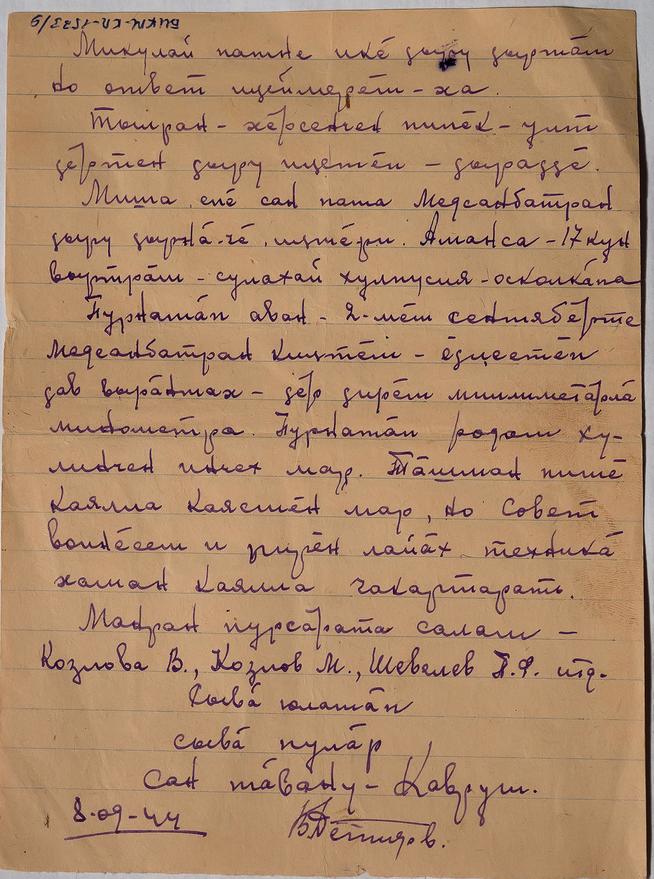 БИКМ-КП-1573/9
Микулай патне икĕ ҫыру ҫыртăм
но ответ илеймерĕм-ха.
Тылран-хĕрсенчен пинĕк-улт
ҫĕртен ҫыру илетĕп - ҫыраҫҫĕ.
Миша, епĕ сан пата Медсанбатран
ҫыру ҫырнă-чĕ, илтĕри. Аманса-17 кун
выртрăм - сулахай хулпуссия-осколкăпа
Пурнатăп аван - 2-мĕш сентябĕрте
Медсанбатран килтĕм - ĕҫлетĕп
ҫав вырăнтах - ҫĕр ҫирĕм миллиметăрлă
минометра. Пурнатăп родом ху-
линчен инҫех мар. Тăшман пит
каялла каясшăн мар, но Совет
воинĕсем и унăн лайăх техники
хăман каялла чакартарать.
Манран пурсăрата салам -
Козлова В., Козлов М., Шевелев П.Ф. итд.
Сывă юлатăп
сывă пулăр
Сан тăвану - Кавруш.
8-09-44